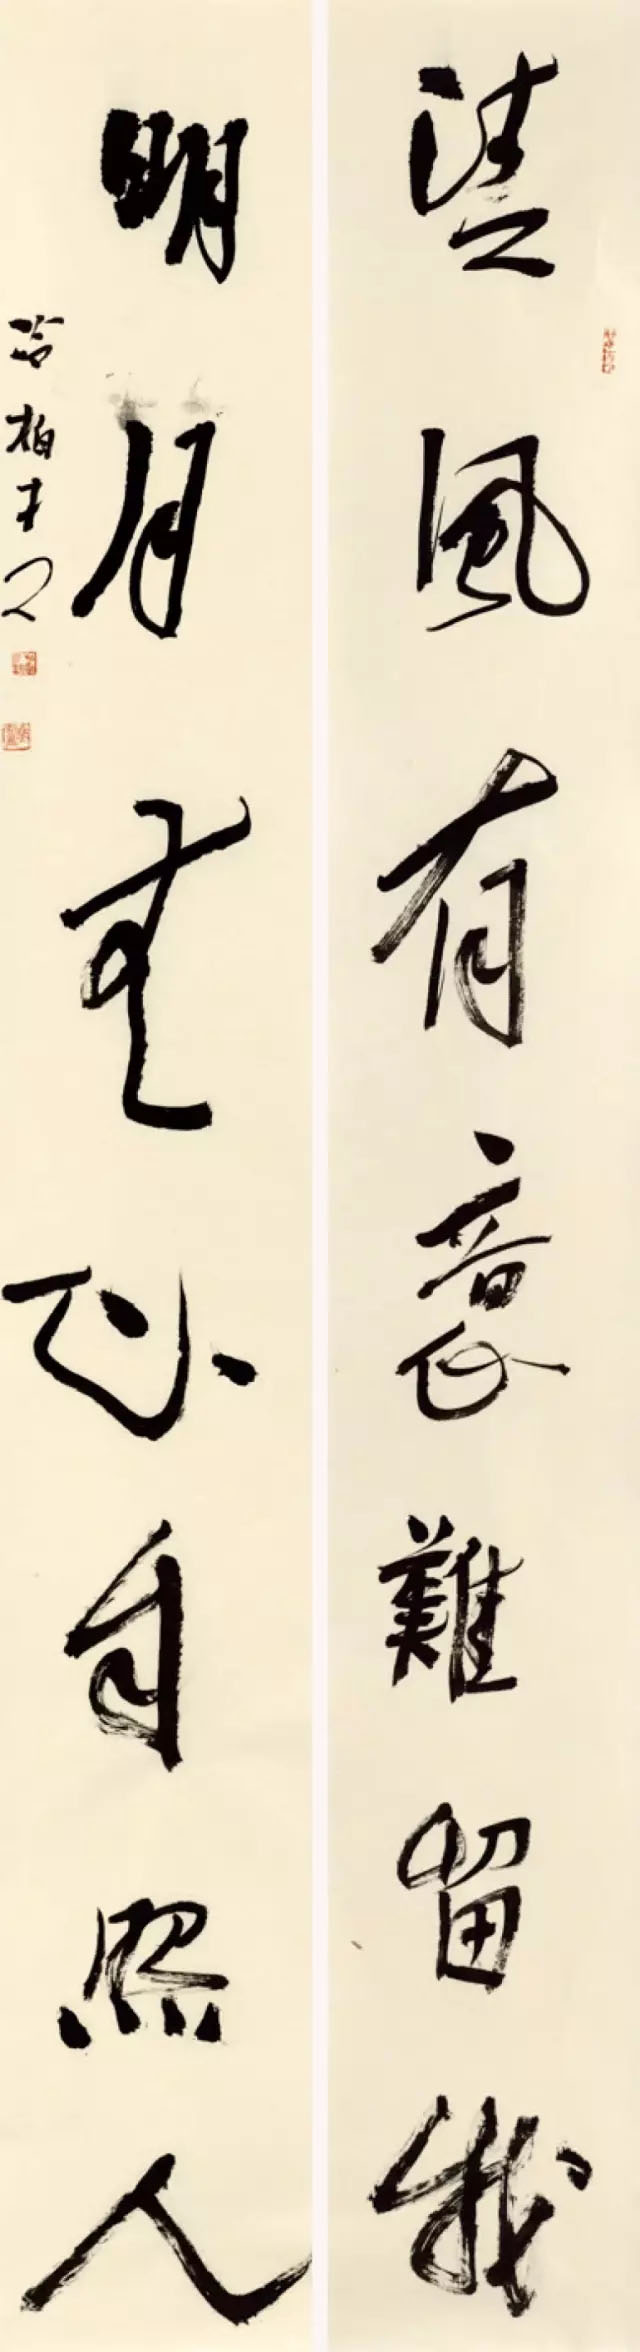 清風有意難留我
明月無心自照人
冷柏青